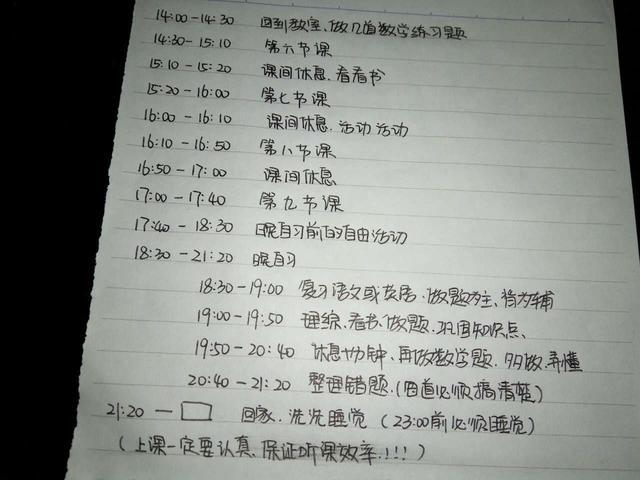 14:00-14:30 回到教室、做几道数学练习题
14:30-15:10 第六节课
15:10-15:20 课间休息、看看书
15:20-16:00 第七节课
16:00-16:10 课间休息、活动活动
16:10-16:50 第八节课
16:50-17:00 课间休息
17:00-17:40 第九节课
17:40-18:30 晚自习前的自由活动
18:30-21:20 晚自习
18:30-19:00 复习语文或英语、做题为主、背为辅
19:00-19:50 理综、看书、做题、巩固知识点、
19:50-20:40 休息十分钟、再做数学题、多做、弄懂
20:40-21:20 整理错题、(四道必须搞清楚)
21:20 — 回家、洗洗睡觉 (23:00前必须睡觉)
(上课一定要认真、保证听课效率、!!!)